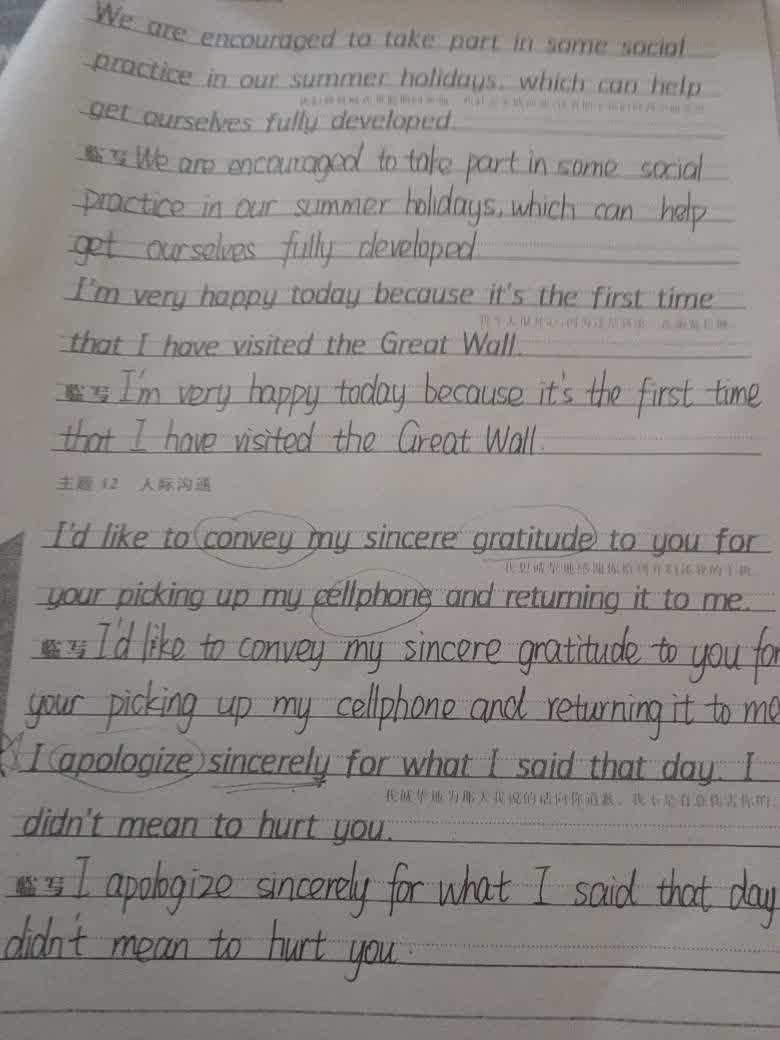 We are encouraged to take part in some social
practice in our summer holidays, which can help
get ourselves fully developed.
临写 We are encouraged to take part in some social
practice in our summer holidays, which can help
get ourselves fully developed.
I'm very happy today because it's the first time
that I have visited the Great Wall.
临写 I'm very happy today because it's the first time
that I have visited the Great Wall.
主题 12 人际沟通
I'd like to convey my sincere gratitude to you for
我想诚挚地感谢你捡到并归还我的手机。
your picking up my cellphone and returning it to me.
临写 I'd like to convey my sincere gratitude to you for
your picking up my cellphone and returning it to me
I apologize sincerely for what I said that day. I
我诚挚地为那天我说的话向你道歉。我不是有意伤害你的。
didn't mean to hurt you.
临写 I apologize sincerely for what I said that day
didn't mean to hurt you.